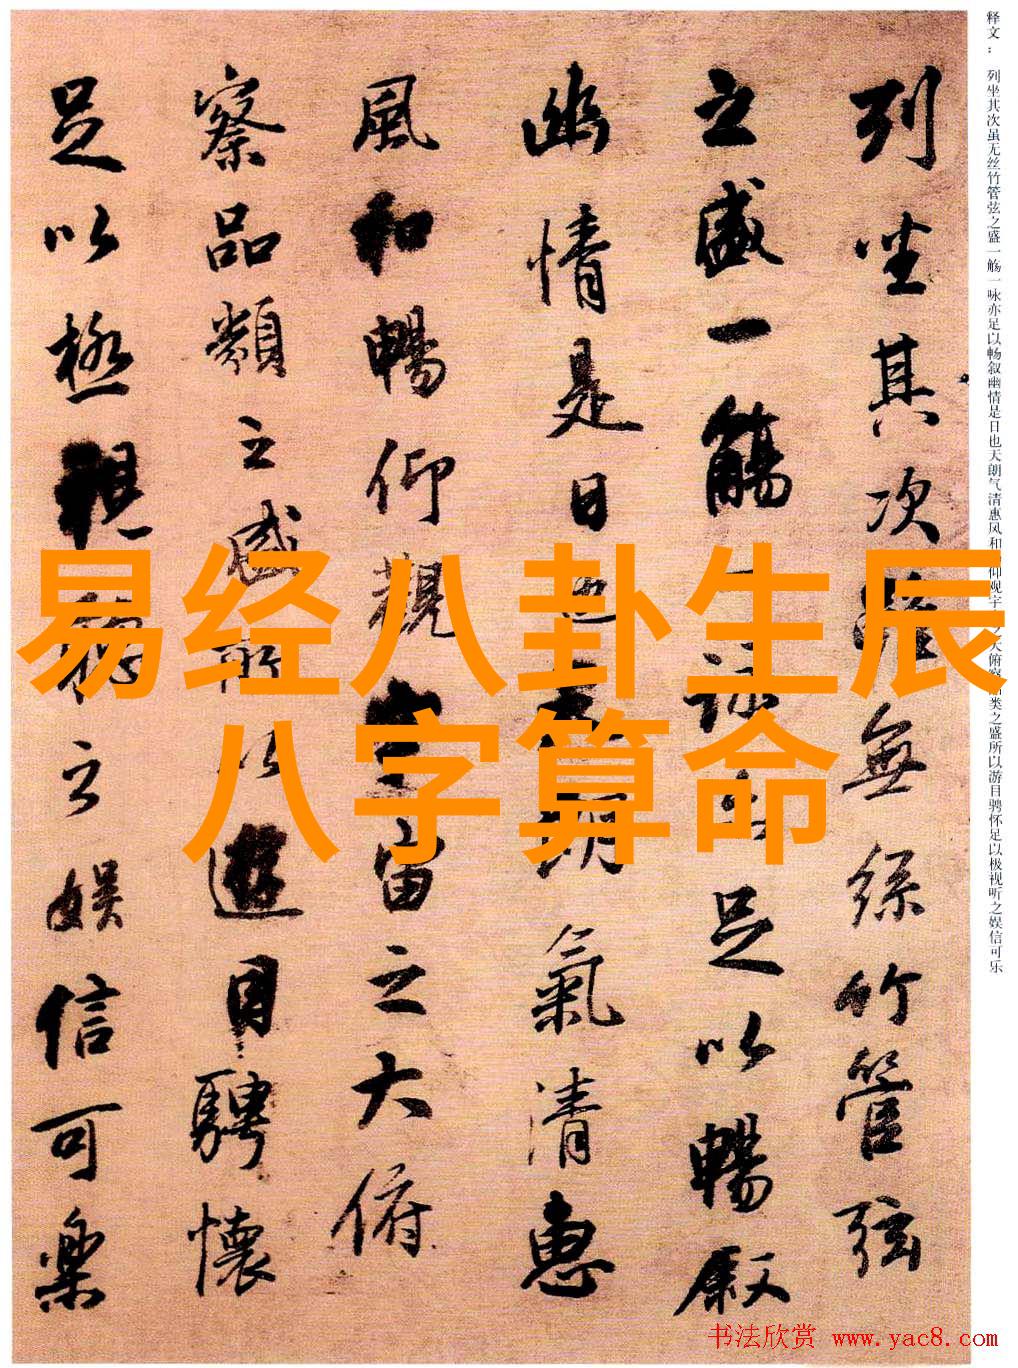 释文： 列坐其次虽无丝竹管弦之盛一觞一咏亦足以畅叙幽情是日也天朗气清惠风和仰观宇之大俯察类之盛所以游目骋怀足以极视听之娱信可乐
列坐其次雖無絲竹管弦
之盛一觴一詠亦足以暢叙
幽情是日也天朗氣清惠
風和暢仰觀宇宙之大俯
察品類之盛所以遊目騁懷
足以極視聽之娱信可樂
易经八卦生辰
八字算命
书法欣赏 www.yac8.com